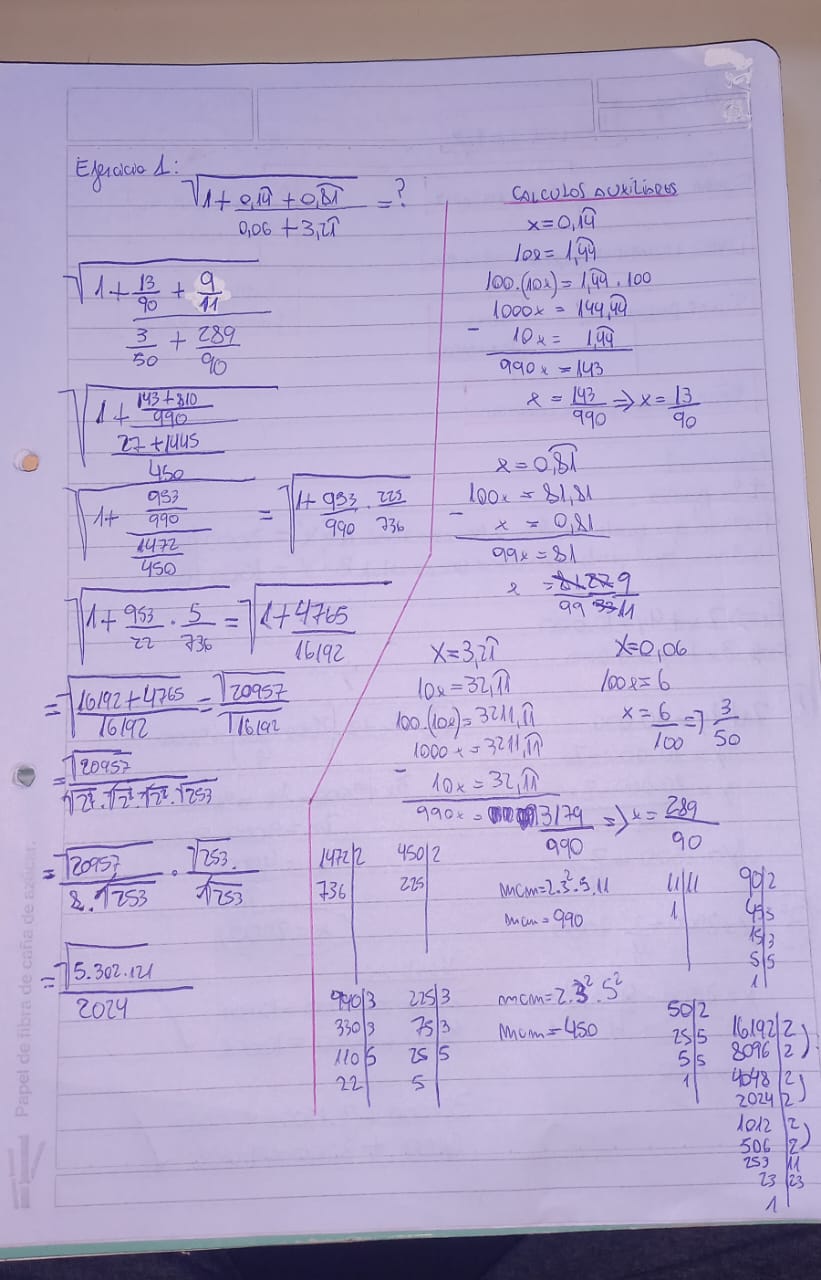 Ejercicio 1:
√(1 + (0,1͡4 + 0,8͡1)/(0,06 + 3,2͡1)) = ?
√(1 + (13/90 + 9/11)/(3/50 + 289/90))
√(1 + ((143+810)/990)/((27+1445)/450))
√(1 + (953/990)/(1472/450)) = √(1 + 953/990 · 225/736)
√(1 + 953/22 · 5/736) = √(1 + 4765/16192)
= √((16192+4765)/16192) = √20957/√16192
= √20957/(√2² · √2² · √2² · √253)
= √20957/(8 · √253) · √253/√253
= √5.302.121/2024
CALCULOS AUXILIARES
x = 0,1͡4
10x = 1,4͡4
100.(10x) = 1,4͡4 . 100
1000x = 144,4͡4
- 10x = 1,4͡4
990x = 143
x = 143/990 => x = 13/90
x = 0,8͡1
100x = 81,81
- x = 0,81
99x = 81
x = 81 27 9/99 33 11
x = 3,2͡1
10x = 32,1͡1
100.(10x) = 3211,1͡1
1000x = 3211,1͡1
- 10x = 32,1͡1
990x = 3179/990 => x = 289/90
x = 0,06
100x = 6
x = 6/100 => 3/50
1472|2
736|
450|2
225|
mcm = 2.3².5.11
mcm = 990
11|11
1|
90|2
45|3
15|3
5|5
1|
990|3
330|3
110|5
22|
225|3
75|3
25|5
5|
mcm = 2.3².5²
mcm = 450
50|2
25|5
5|5
1|
16192|2
8096|2
4048|2
2024|2
1012|2
506|2
253|11
23|23
1
Papel de fibra de caña de azúcar.